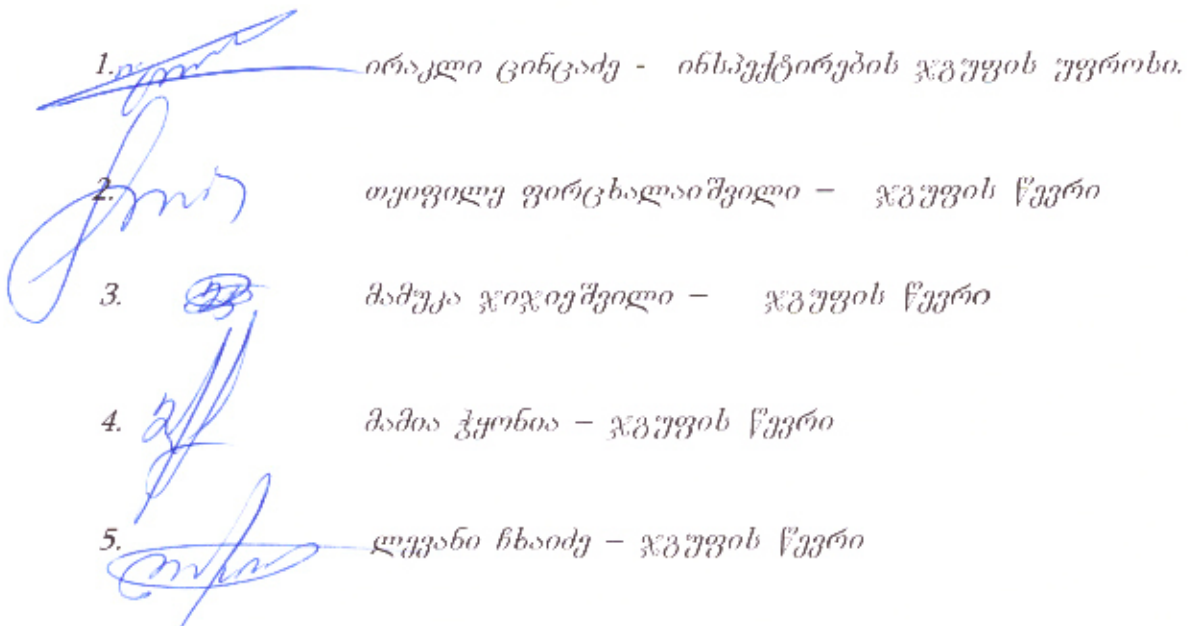 1. ირაკლი ცინცაძე - ინსპექტირების ჯგუფის უფროსი.
2. თეიფილე ფირცხალაიშვილი – ჯგუფის წევრი
3. მამუკა ჯიჯიეშვილი – ჯგუფის წევრი
4. მამია ჭყონია – ჯგუფის წევრი
5. ლევანი ჩხაიძე – ჯგუფის წევრი